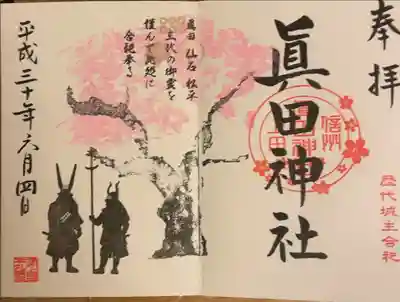 奉拝
眞田神社
信州
上田
眞田
神社
歴代城主合祀
真田 仙石 松平
三代の御霊を
謹んで此処に
合祀奉る
平成三十年六月四日